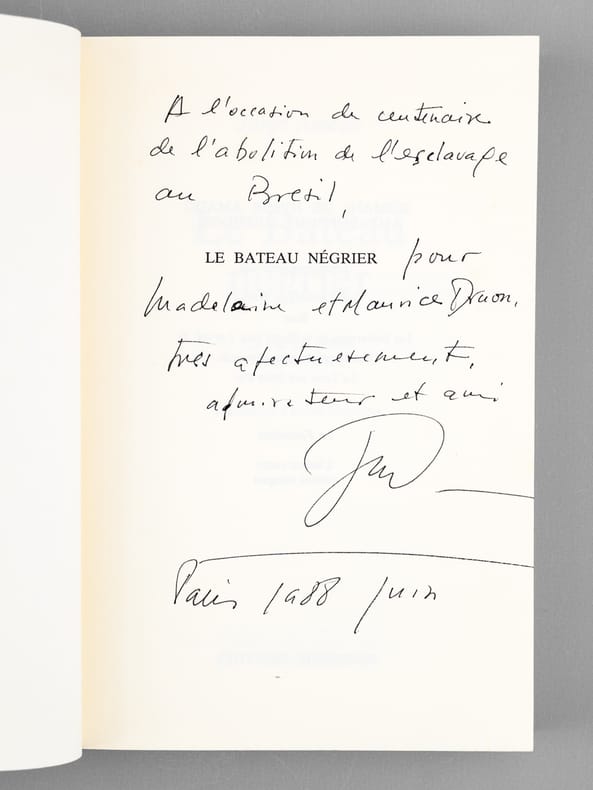 A l'occasion de centenaire
de l'abolition de l'esclavage
au Bresil,
LE BATEAU NÉGRIER pour
Madelaine et Maurice Druon,
tres afectuesement,
admirateur et ami
Paris 1988 juin